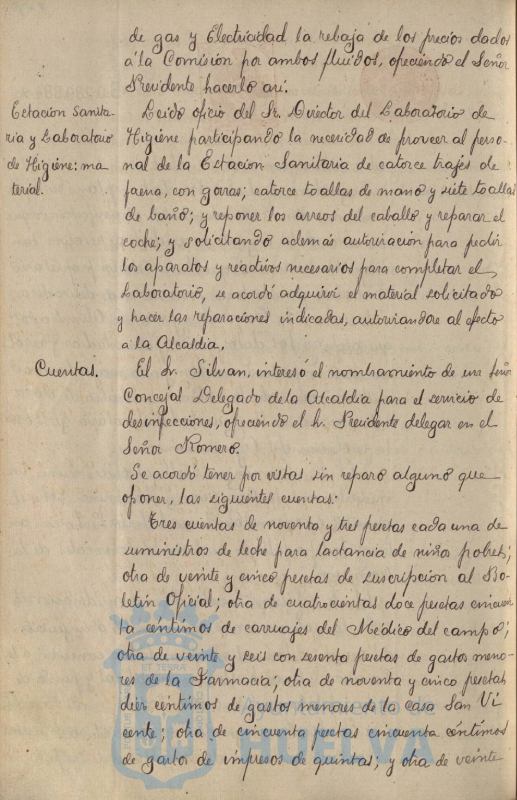 de gas y Electricidad la rebaja de los precios dados
á la Comisión por ambos fluidos, ofreciendo el Señor
Presidente hacerlo así.
Estación Sanita-
ria y Laboratorio
de Higiene: ma
terial.
Leido oficio del Sr. Director del Laboratorio de
Higiene participando la necesidad de proveer al perso-
nal de la Estacion Sanitaria de catorce trajes de
faena, con gorras; catorce toallas de mano y siete toallas
de baño; y reponer los arreos del caballo y reparar el
coche; y solicitando además autorización para pedir
los aparatos y reactivos necesarios para completar el
Laboratorio, se acordó adquirir el material solicitado
y hacer las reparaciones indicadas, autorizandose al efecto
a la Alcaldia.
Cuentas.
El Sr. Silvan, interesó el nombramiento de un Señor
Concejal Delegado de la Alcaldia para el servicio de
desinfecciones, ofreciendo el Sr. Presidente delegar en el
Señor Romero.
Se acordó tener por vistas sin reparo alguno que
oponer, las siguientes cuentas:
Tres cuentas de noventa y tres pesetas cada una de
suministros de leche para lactancia de niños pobres;
otra de veinte y cinco pesetas de suscripcion al Bo-
letin Oficial; otra de cuatrocientas doce pesetas cincuen
ta céntimos de carruajes del Médico del campo;
otra de veinte y seis con sesenta pesetas de gastos meno-
res de la Farmacia; otra de noventa y cinco pesetas
diez céntimos de gastos menores de la casa San Vi
cente; otra de cincuenta pesetas cincuenta céntimos
de gastos de impresos de quintas; y otra de veinte
Ayuntamiento de
HUELVA